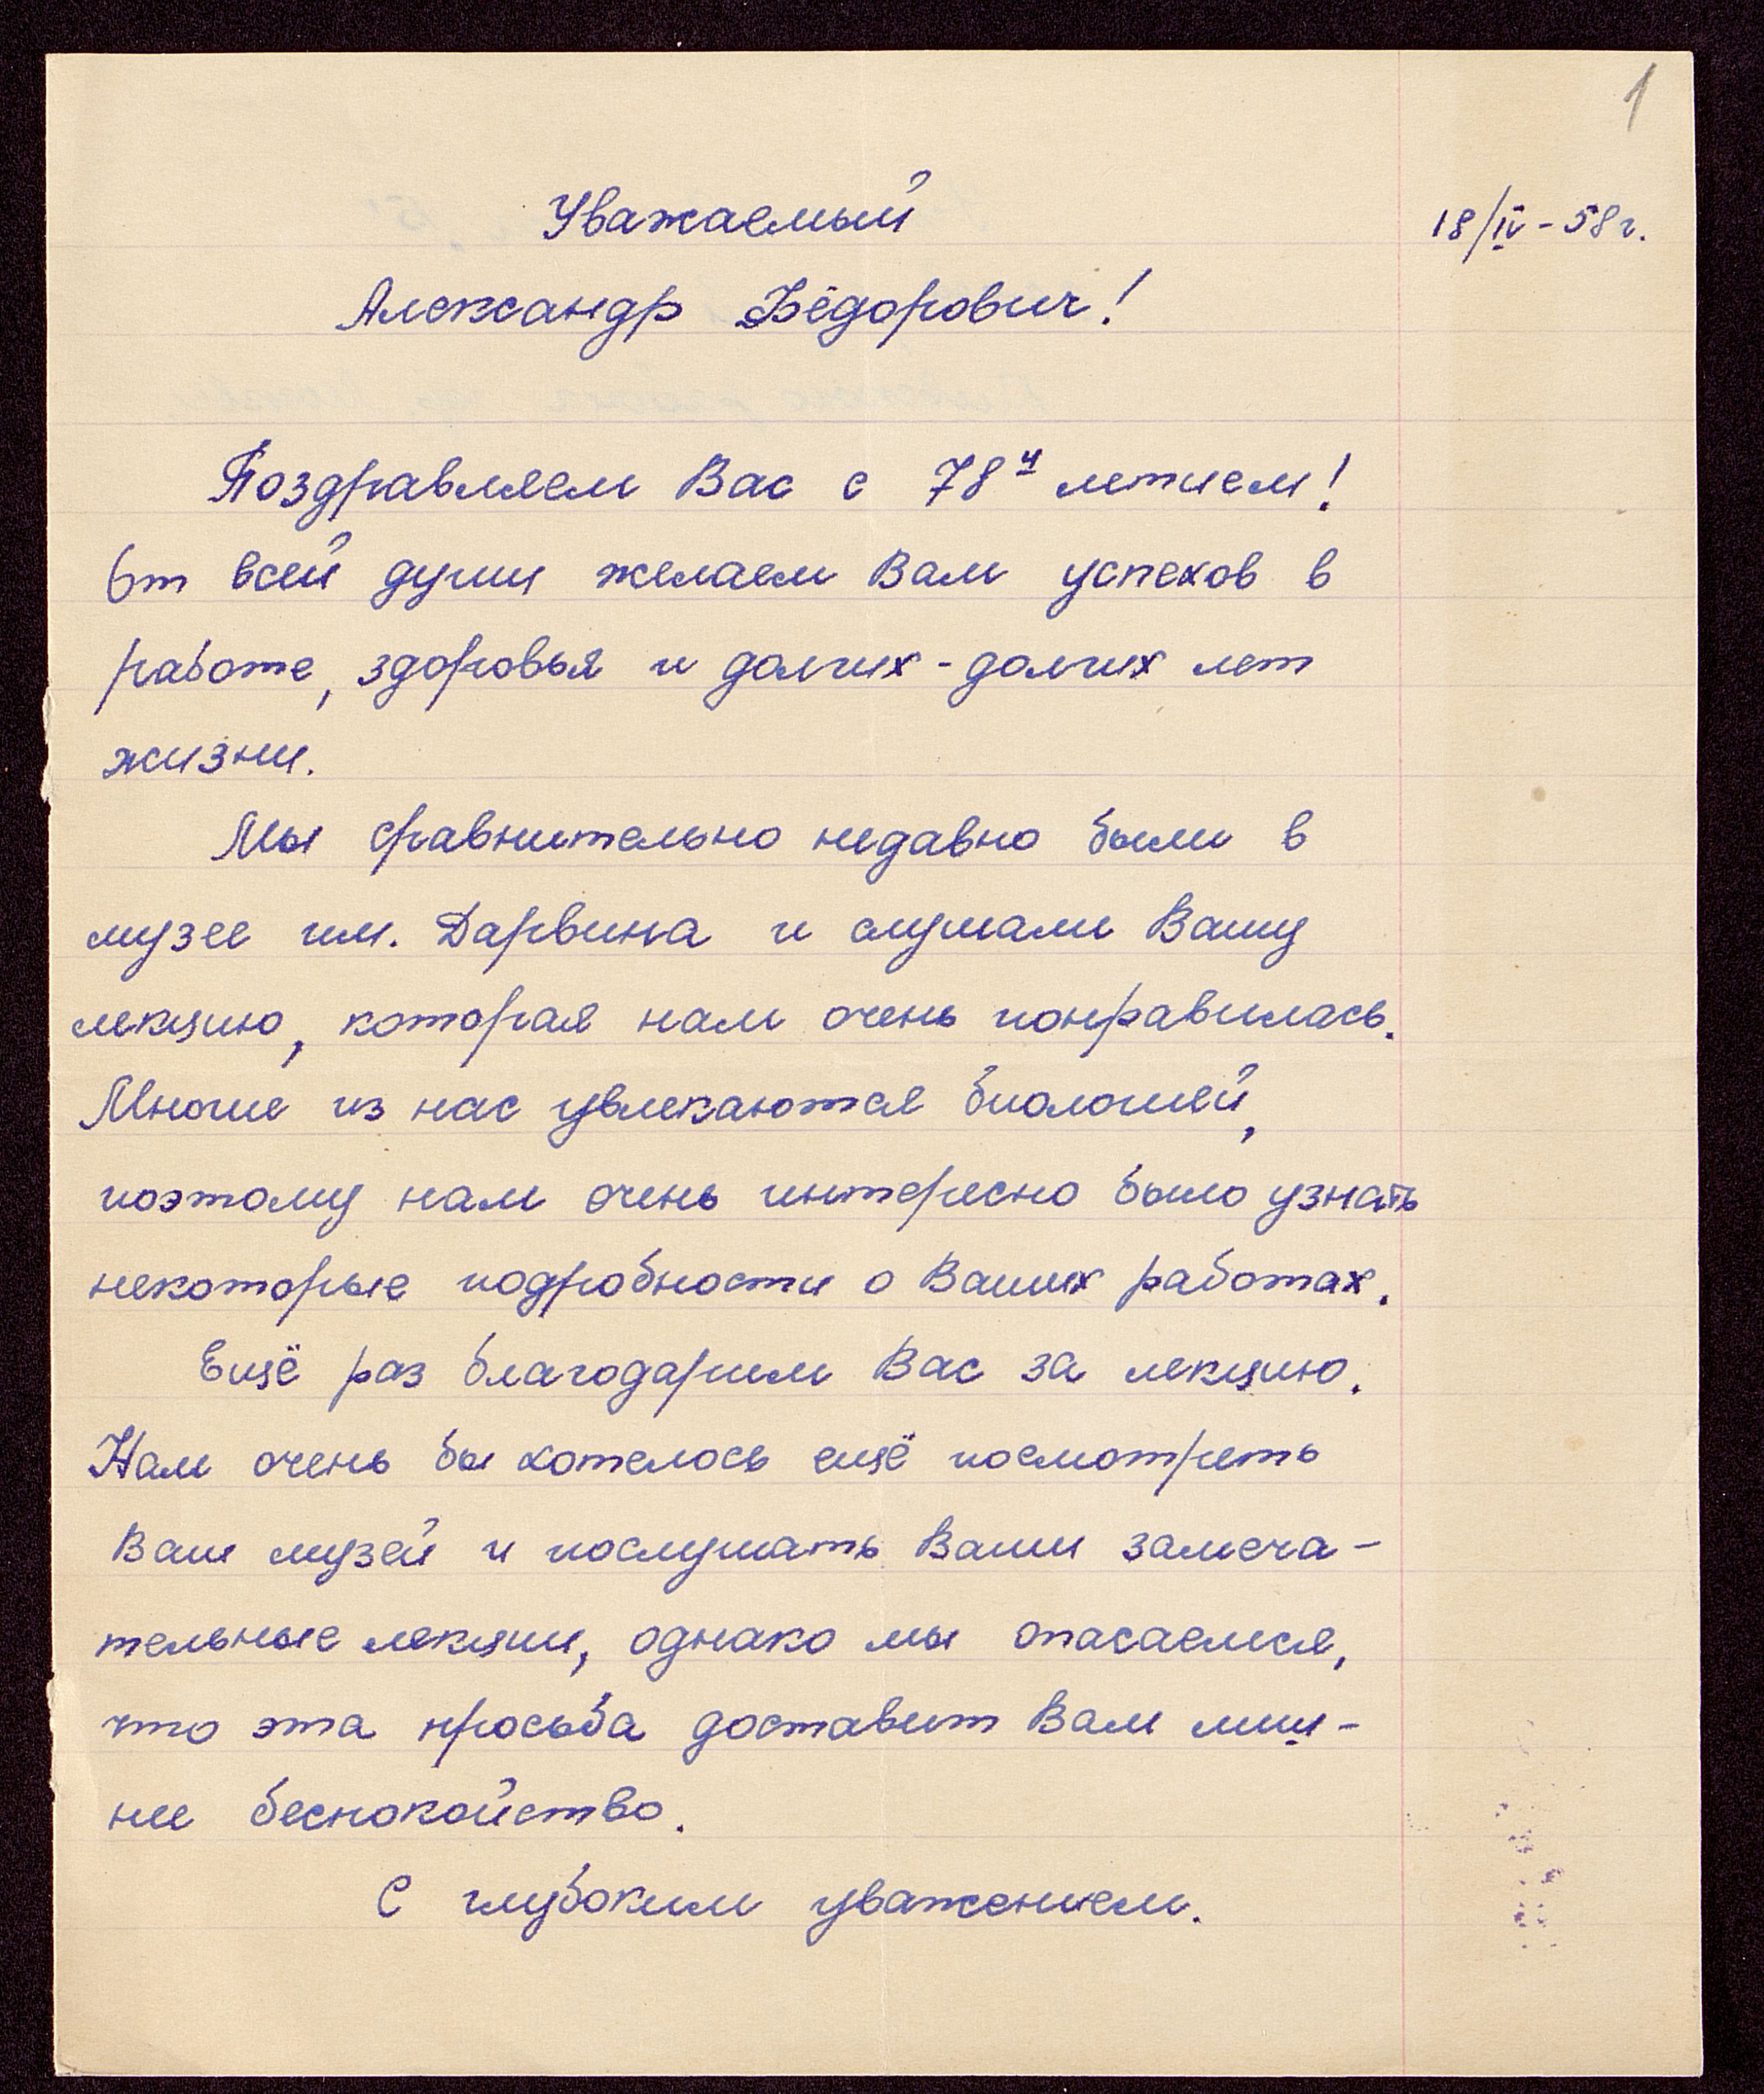 1
Уважаемый
18/IV - 58 г.
Александр Фёдорович!
Поздравляем Вас с 78и летием!
От всей души желаем Вам успехов в
работе, здоровья и долгих - долгих лет
жизни.
Мы сравнительно недавно были в
музее им. Дарвина и слушали Вашу
лекцию, которая нам очень понравилась.
Многие из нас увлекаются биологией,
поэтому нам очень интересно было узнать
некоторые подробности о Ваших работах.
Ещё раз благодарим Вас за лекцию.
Нам очень бы хотелось ещё посмотреть
Ваш музей и послушать Ваши замеча-
тельные лекции, однако мы опасаемся,
что эта просьба доставит Вам лиш-
нее беспокойство.
С глубоким уважением.